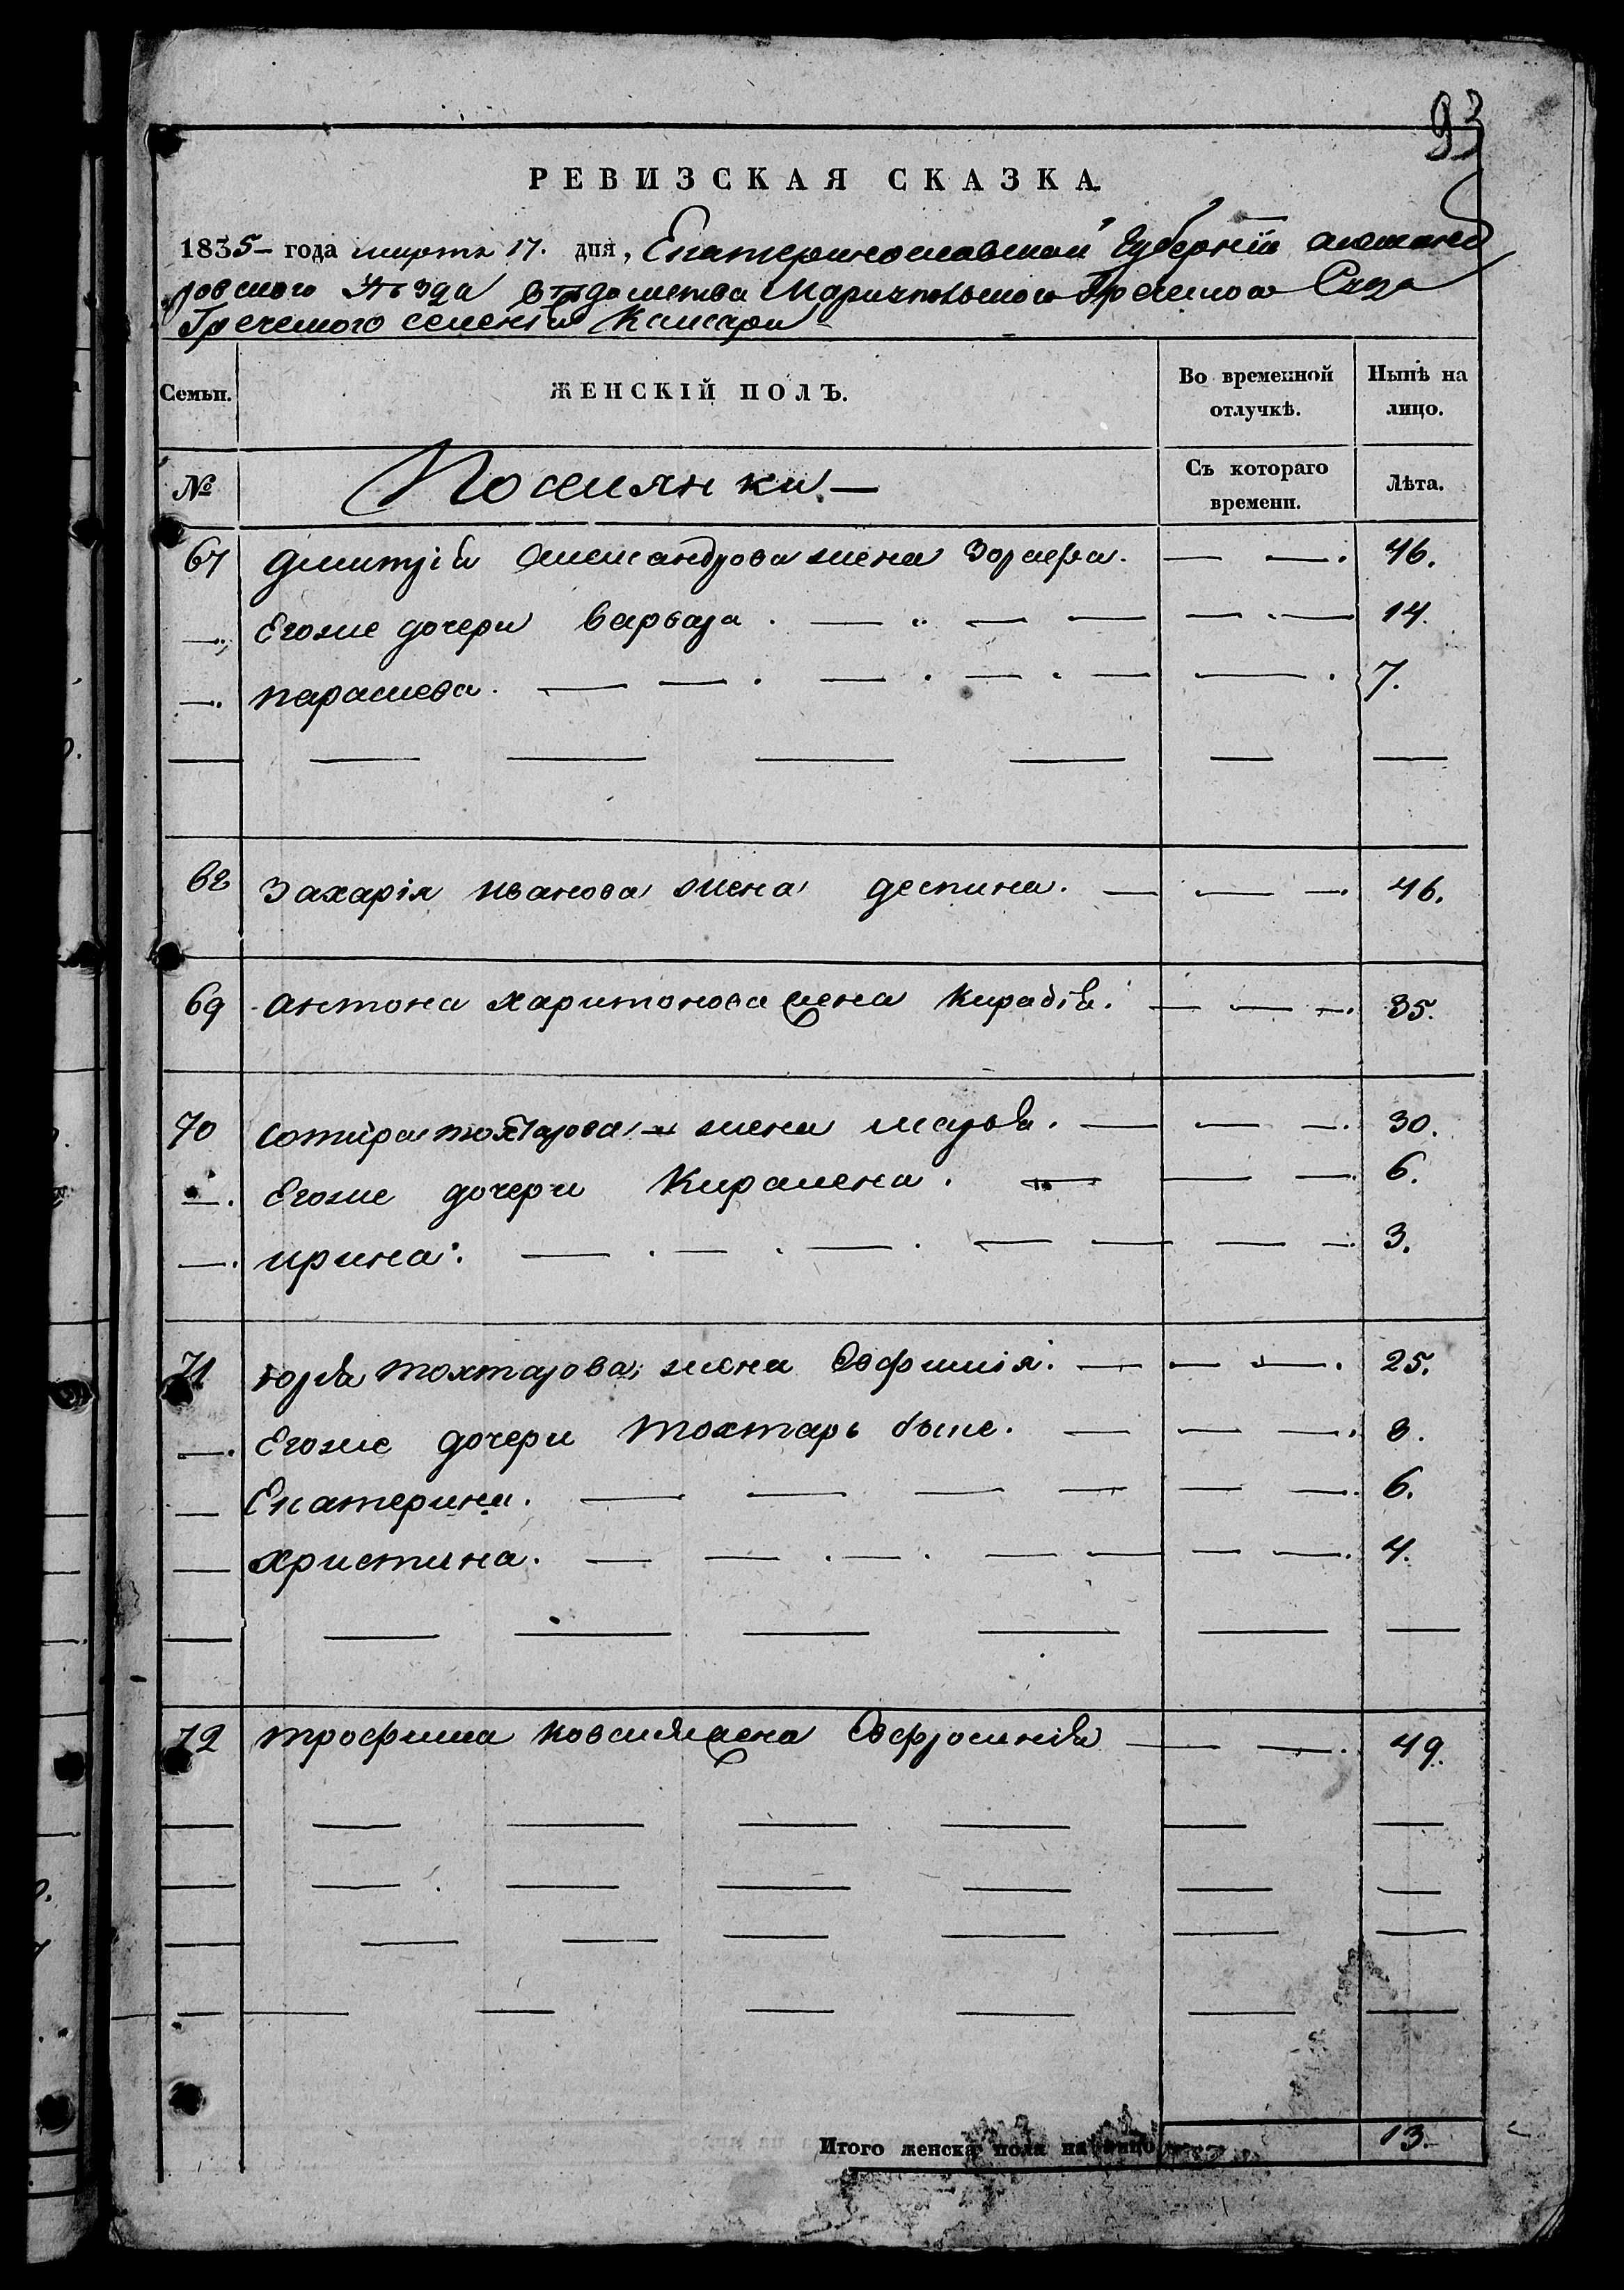 93
РЕВИЗСКАЯ СКАЗКА.
1835 – года марта 17. дня, Екатеринославской Губерніи александ
ровского Уѣзда вѣдомства Мариупольского Греческого Суда
Греческого селенія Камары
Семьи. ЖЕНСКІЙ ПОЛЪ. Во временной отлучкѣ. Нынѣ на лицо.
№ Поселянки – Съ котораго времени. Лѣта.
67 Дмитрія Александрова жена 46.
Егоже дочери варвара 14.
парасковa. 7.
68 Захарія иванова жена деспина. 46.
69 антона харитонова жена Кираѳія. 35.
70 сотира тохтарова жена марья. 30.
Егоже дочери Кирамена. 6.
ирина. 3.
71 юрія тохтарова жена Евфимія. 25.
Егоже дочери тохтарь быке. 8.
Екатерина. 6.
христина. 4.
72 трофима жена Евфросинія 49.
Итого женска пола на лицо 13.